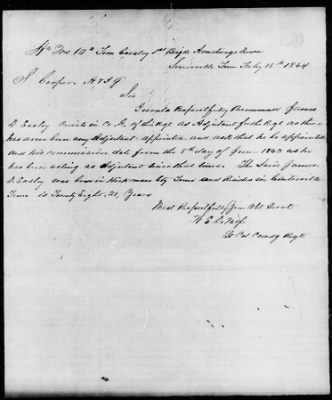 Hd Qrs 10th Tenn Cavalry 1st Brigd Armstrongs
Tenn Feby 15th 1864
S. Cooper A & I G
Sir
I would Respectfully Recommend James
D. Easley Private in Co. of this Regt as Adjutant for the Regt as there
has never been any Adjutant appointed and ask that he be appointed
and his commission date from the 1st day of June 1863 as he
has been acting as Adjutant since that time. The Said James
D. Easley was born in Hickman Cty Tenn and Resides in Centreville
Tenn is Twenty Eight, 28, Years
Most Respectfully Your Obt Servt
W. E. DeMoss
Lt Col Comdg Regt